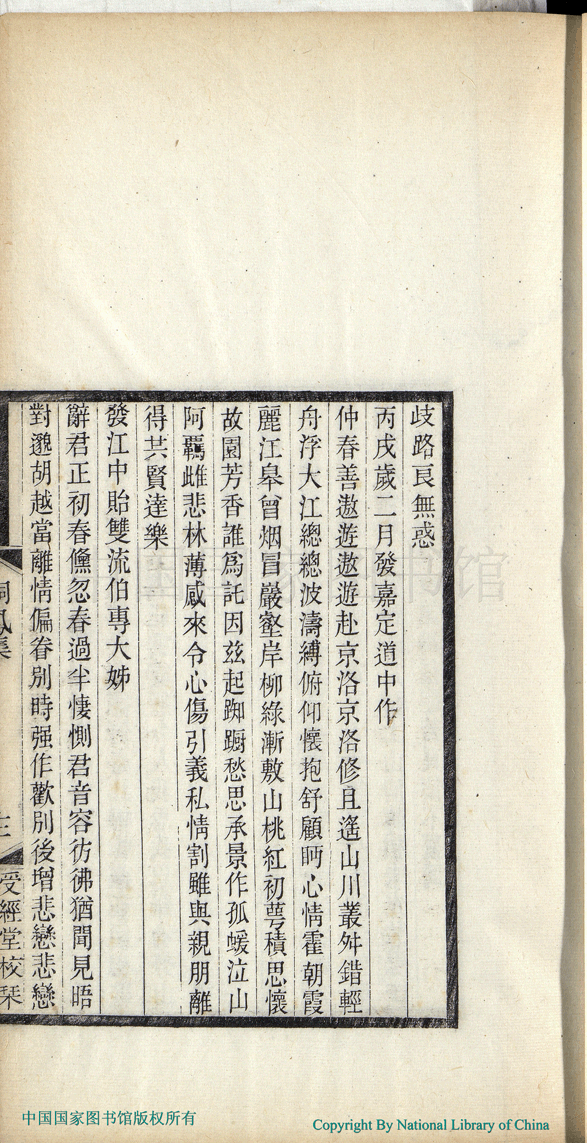 歧路良無惑
丙戌歲二月發嘉定道中作
仲春善遨遊遨遊赴京洛京洛修且遙山川叢舛錯輕
舟浮大江總總波濤縛俯仰懷抱舒顧眄心情霍朝霞
麗江皋曾烟冒巖壑岸柳綠漸敷山桃紅初萼積思懷
故園芳香誰為託因茲起踟躕愁思承景作孤蝯泣山
阿羈雌悲林薄感來令心傷引義私情割雖與親朋離
得共賢達樂
發江中貽雙流伯專大姊
辭君正初春儵忽春過半悽惻君音容彷彿猶聞見晤
對邈胡越當離情偏眷別時强作歡別後增悲戀悲戀
受經堂校栞
中国国家图书馆
中国国家图书馆版权所有
Copyright By National Library of China